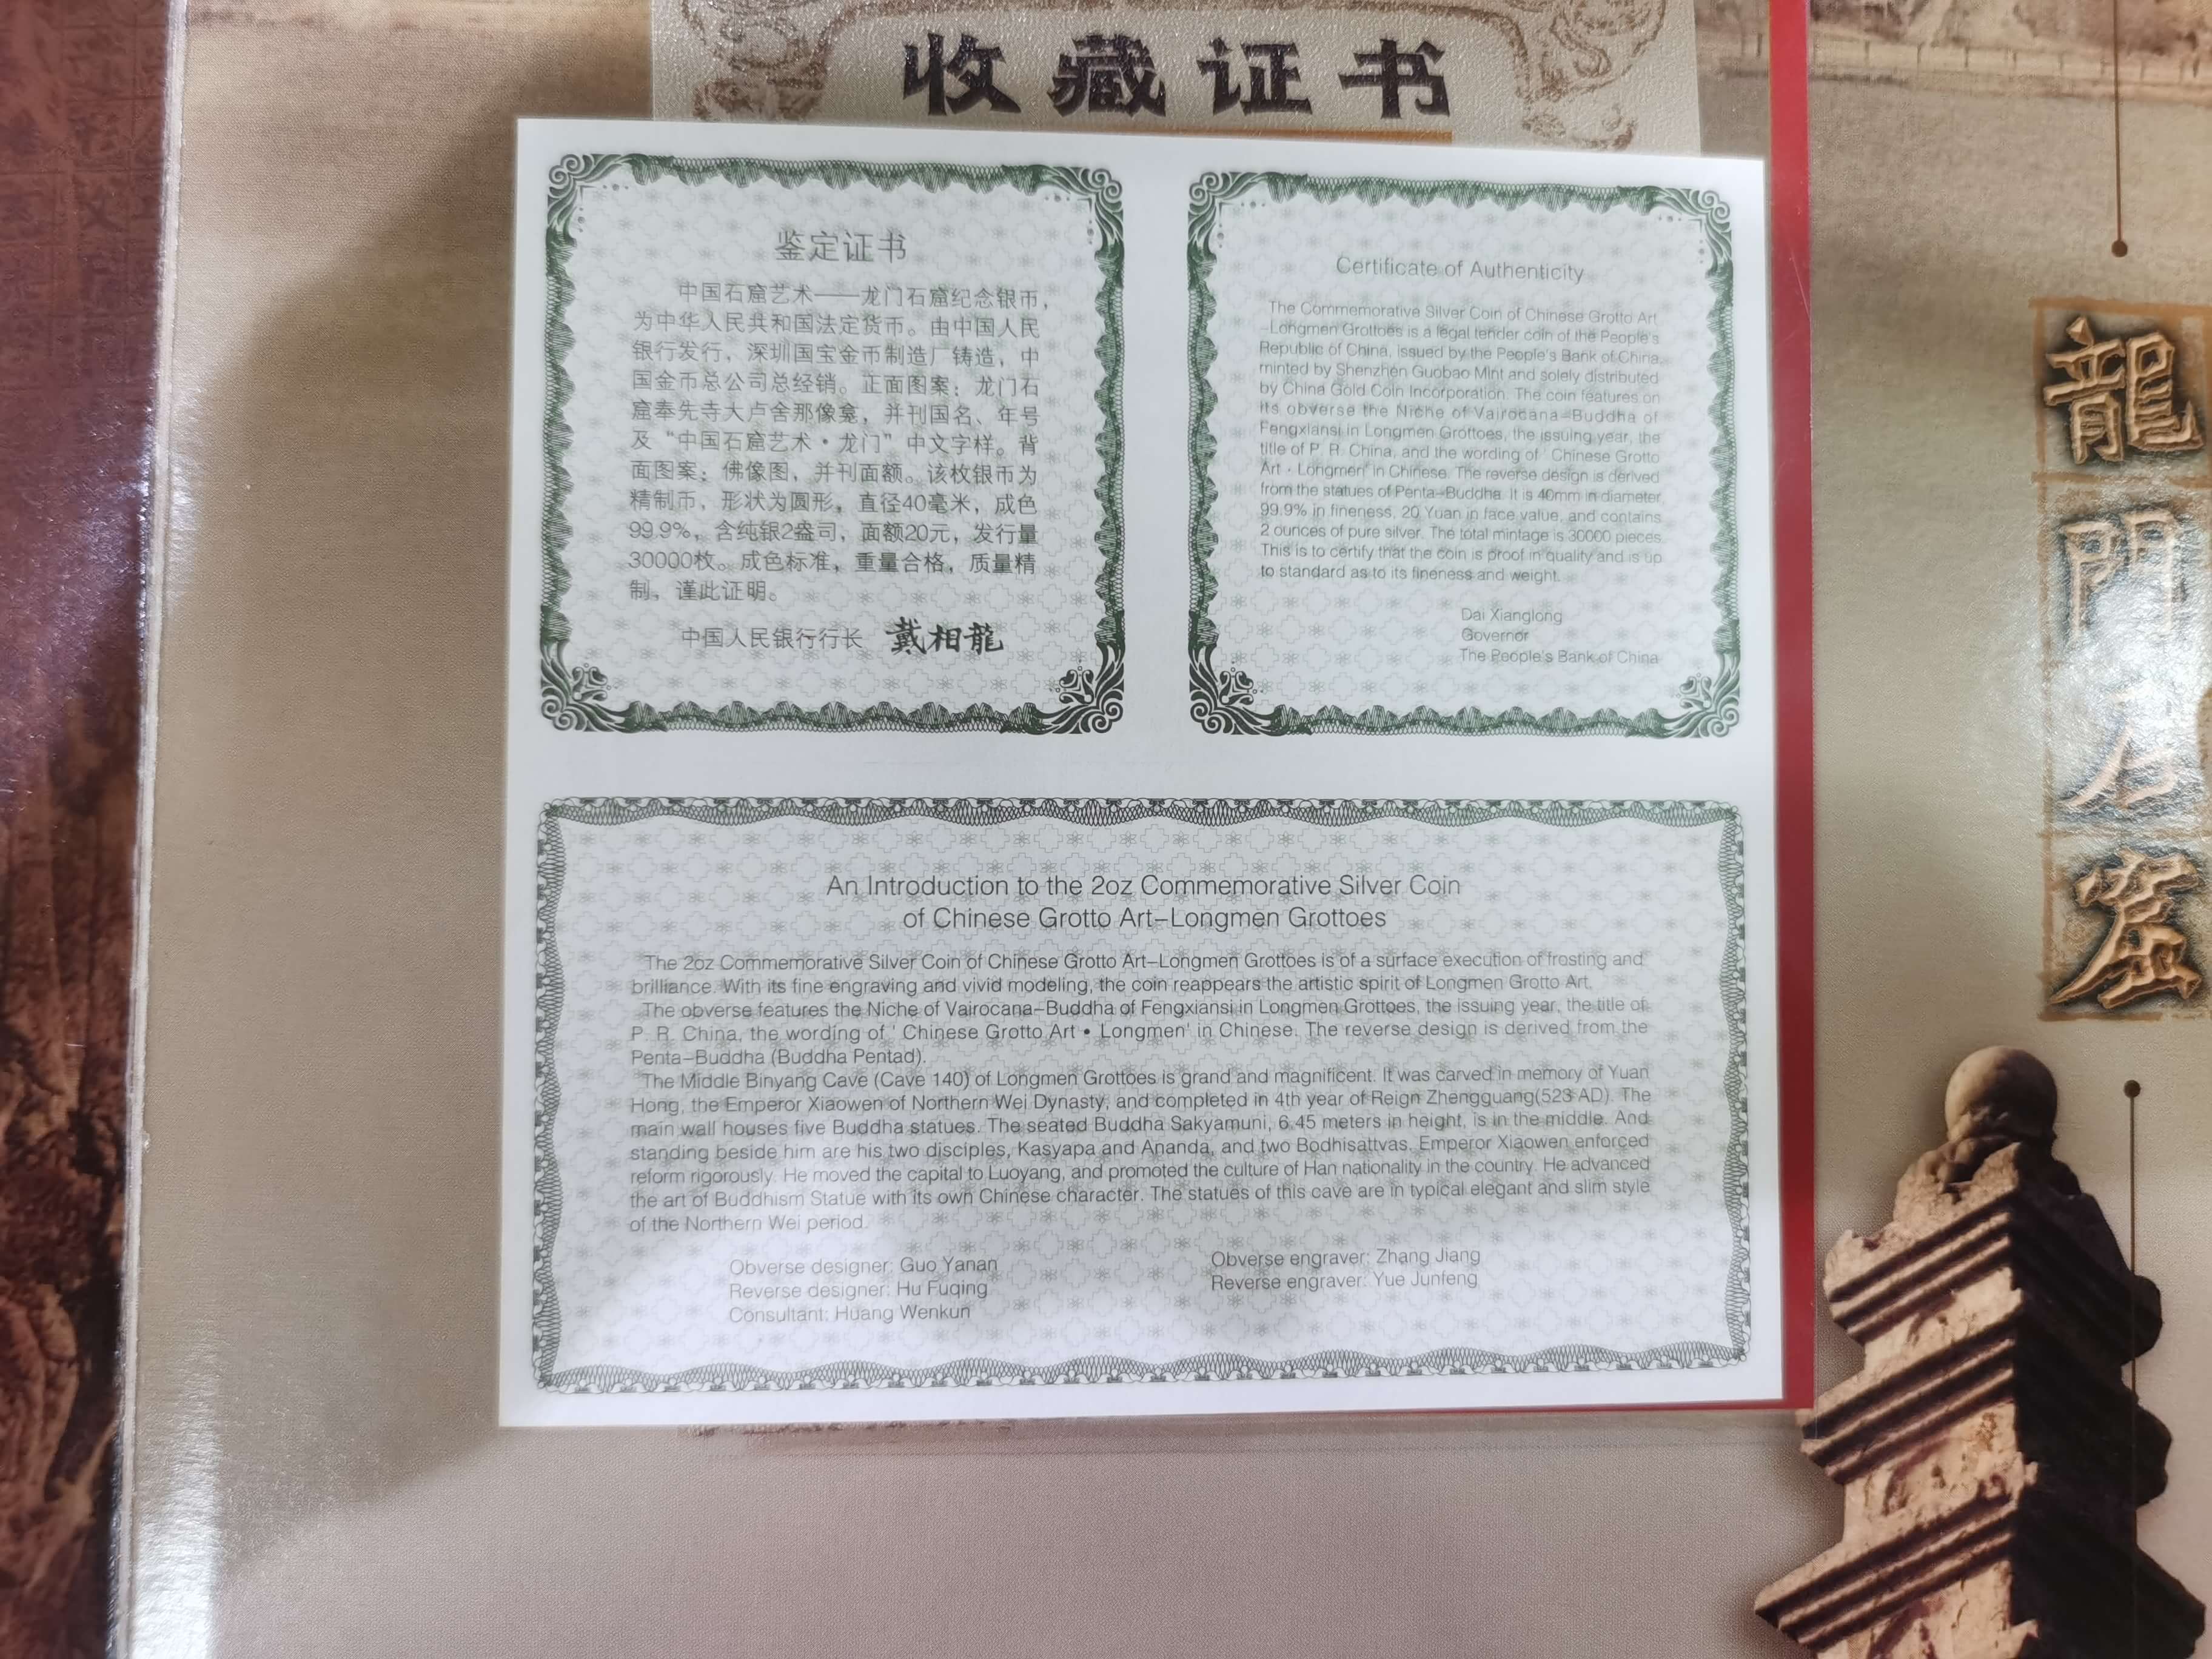 收藏证书
鉴定证书
中国石窟艺术——龙门石窟纪念银币，
为中华人民共和国法定货币。由中国人民
银行发行，深圳国宝金币制造厂铸造，中
国金币总公司总经销。正面图案：龙门石
窟奉先寺大卢舍那像龛，并刊国名、年号
及“中国石窟艺术·龙门”中文字样。背
面图案：佛像图，并刊面额。该枚银币为
精制币，形状为圆形，直径40毫米，成色
99.9%，含纯银2盎司，面额20元，发行量
30000枚。成色标准，重量合格，质量精
制，谨此证明。
中国人民银行行长 戴相龍
Certificate of Authenticity
The Commemorative Silver Coin of Chinese Grotto Art
–Longmen Grottoes is a legal tender coin of the People's
Republic of China, issued by the People's Bank of China,
minted by Shenzhen Guobao Mint and solely distributed
by China Gold Coin Incorporation. The coin features on
its obverse the Niche of Vairocana–Buddha of
Fengxiansi in Longmen Grottoes, the issuing year, the
title of P. R. China, and the wording of ' Chinese Grotto
Art · Longmen' in Chinese. The reverse design is derived
from the statues of Penta–Buddha. It is 40mm in diameter,
99.9% in fineness, 20 Yuan in face value, and contains
2 ounces of pure silver. The total mintage is 30000 pieces.
This is to certify that the coin is proof in quality and is up
to standard as to its fineness and weight.
Dai Xianglong
Governor
The People's Bank of China
An Introduction to the 2oz Commemorative Silver Coin
of Chinese Grotto Art–Longmen Grottoes
The 2oz Commemorative Silver Coin of Chinese Grotto Art–Longmen Grottoes is of a surface execution of frosting and
brilliance. With its fine engraving and vivid modeling, the coin reappears the artistic spirit of Longmen Grotto Art.
The obverse features the Niche of Vairocana–Buddha of Fengxiansi in Longmen Grottoes, the issuing year, the title of
P. R. China, the wording of ' Chinese Grotto Art • Longmen' in Chinese. The reverse design is derived from the
Penta–Buddha (Buddha Pentad).
The Middle Binyang Cave (Cave 140) of Longmen Grottoes is grand and magnificent. It was carved in memory of Yuan
Hong, the Emperor Xiaowen of Northern Wei Dynasty, and completed in 4th year of Reign Zhengguang(523 AD). The
main wall houses five Buddha statues. The seated Buddha Sakyamuni, 6.45 meters in height, is in the middle. And
standing beside him are his two disciples, Kasyapa and Ananda, and two Bodhisattvas. Emperor Xiaowen enforced
reform rigorously. He moved the capital to Luoyang, and promoted the culture of Han nationality in the country. He advanced
the art of Buddhism Statue with its own Chinese character. The statues of this cave are in typical elegant and slim style
of the Northern Wei period.
Obverse designer: Guo Yanan
Reverse designer: Hu Fuqing
Consultant: Huang Wenkun
Obverse engraver: Zhang Jiang
Reverse engraver: Yue Junfeng
龍門石窟